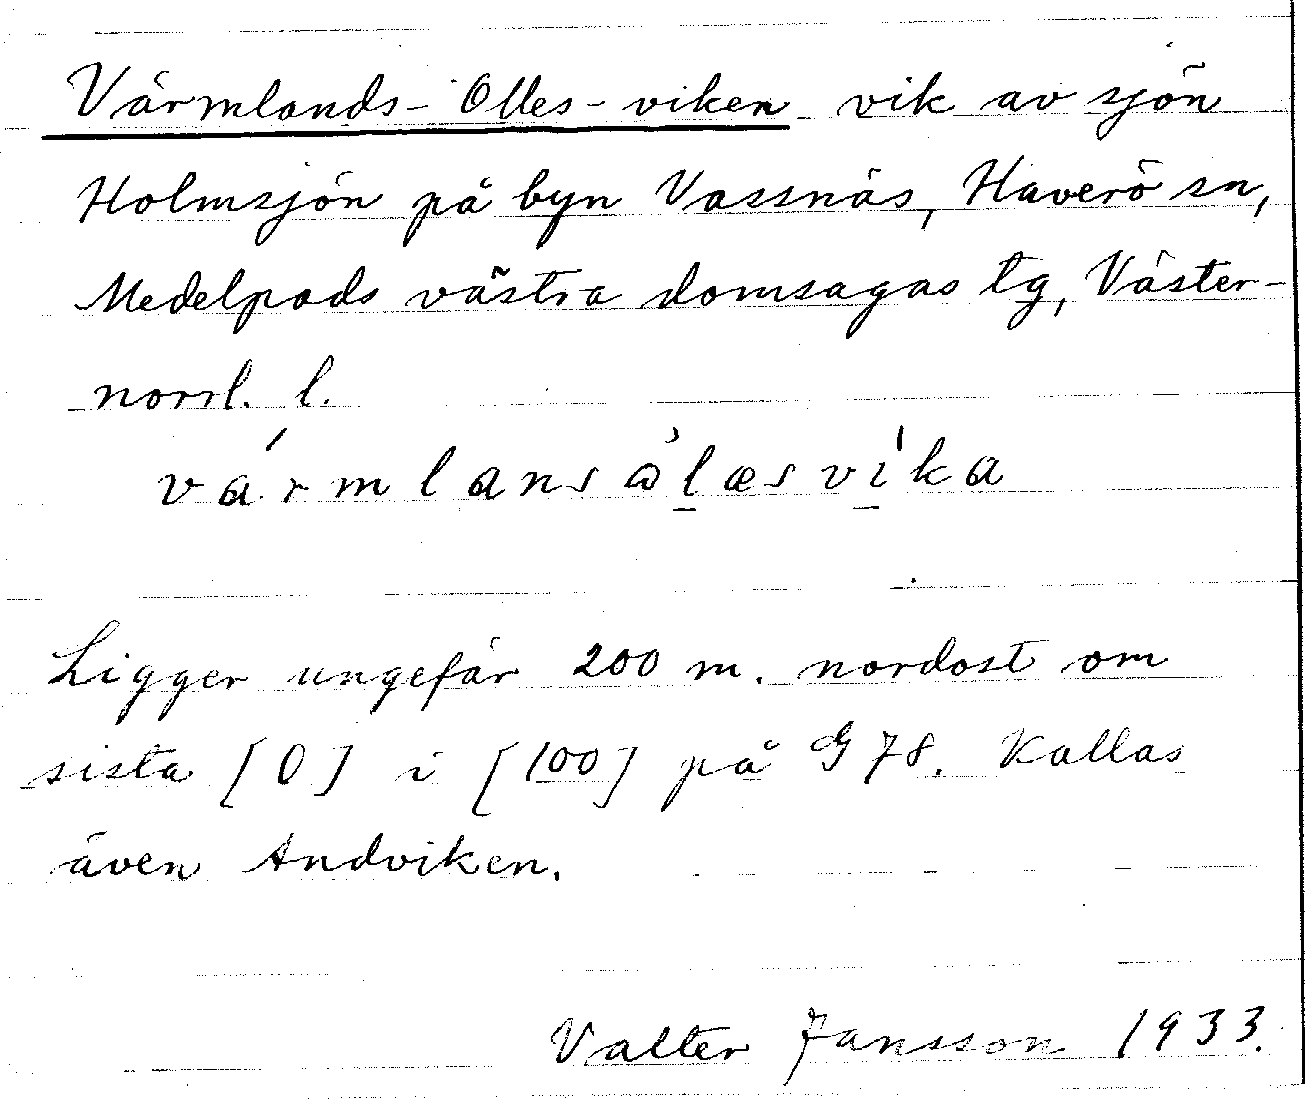 Värmlands-Olles-viken vik av sjön
Holmsjön på byn Vassnäs, Haverö sn,
Medelpads västra domsagas tg, Väster-
norrl. l.
värmlansålæsvika
Ligger ungefär 200 m. nordost om
sista [0] i [100] på G 78. Kallas
även Andviken.
Valter Jansson 1933.